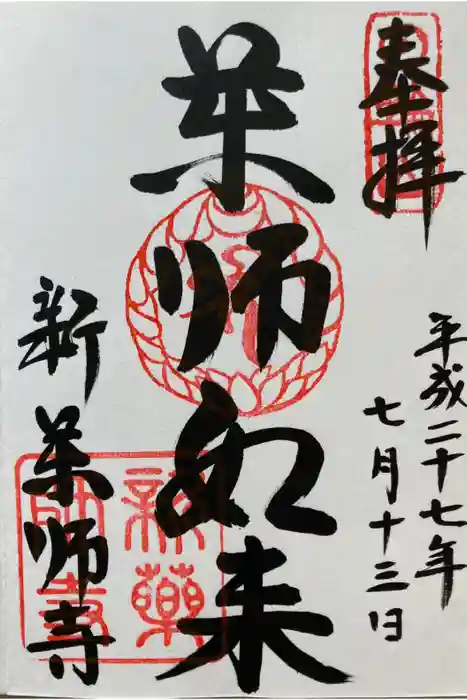 奉拝
平成二十七年
七月十三日
薬師如来
新薬師寺
新薬師寺